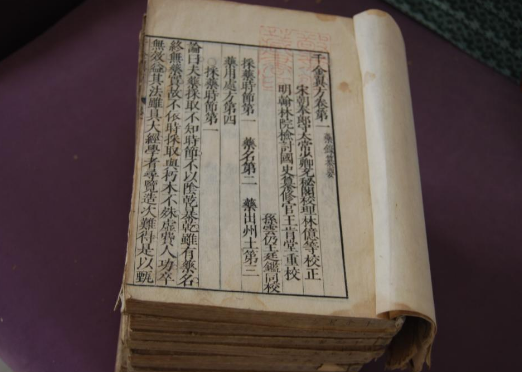 千金翼方卷第一 藥錄纂要
宋朝奉郎太常少卿充秘閣校理林億等校正
明翰林院檢討國史纂修官王肯堂重校
同校
採藥時節第一 藥名第二 藥出州土第三
藥用處方第四
採藥時節第一
論曰夫藥採取不知時節不以陰乾暴乾雖有藥名
終無藥實故不依時採取與朽木不殊虛費人功卒
無效益其法雖具大經學者尋覽造次難得是以甄